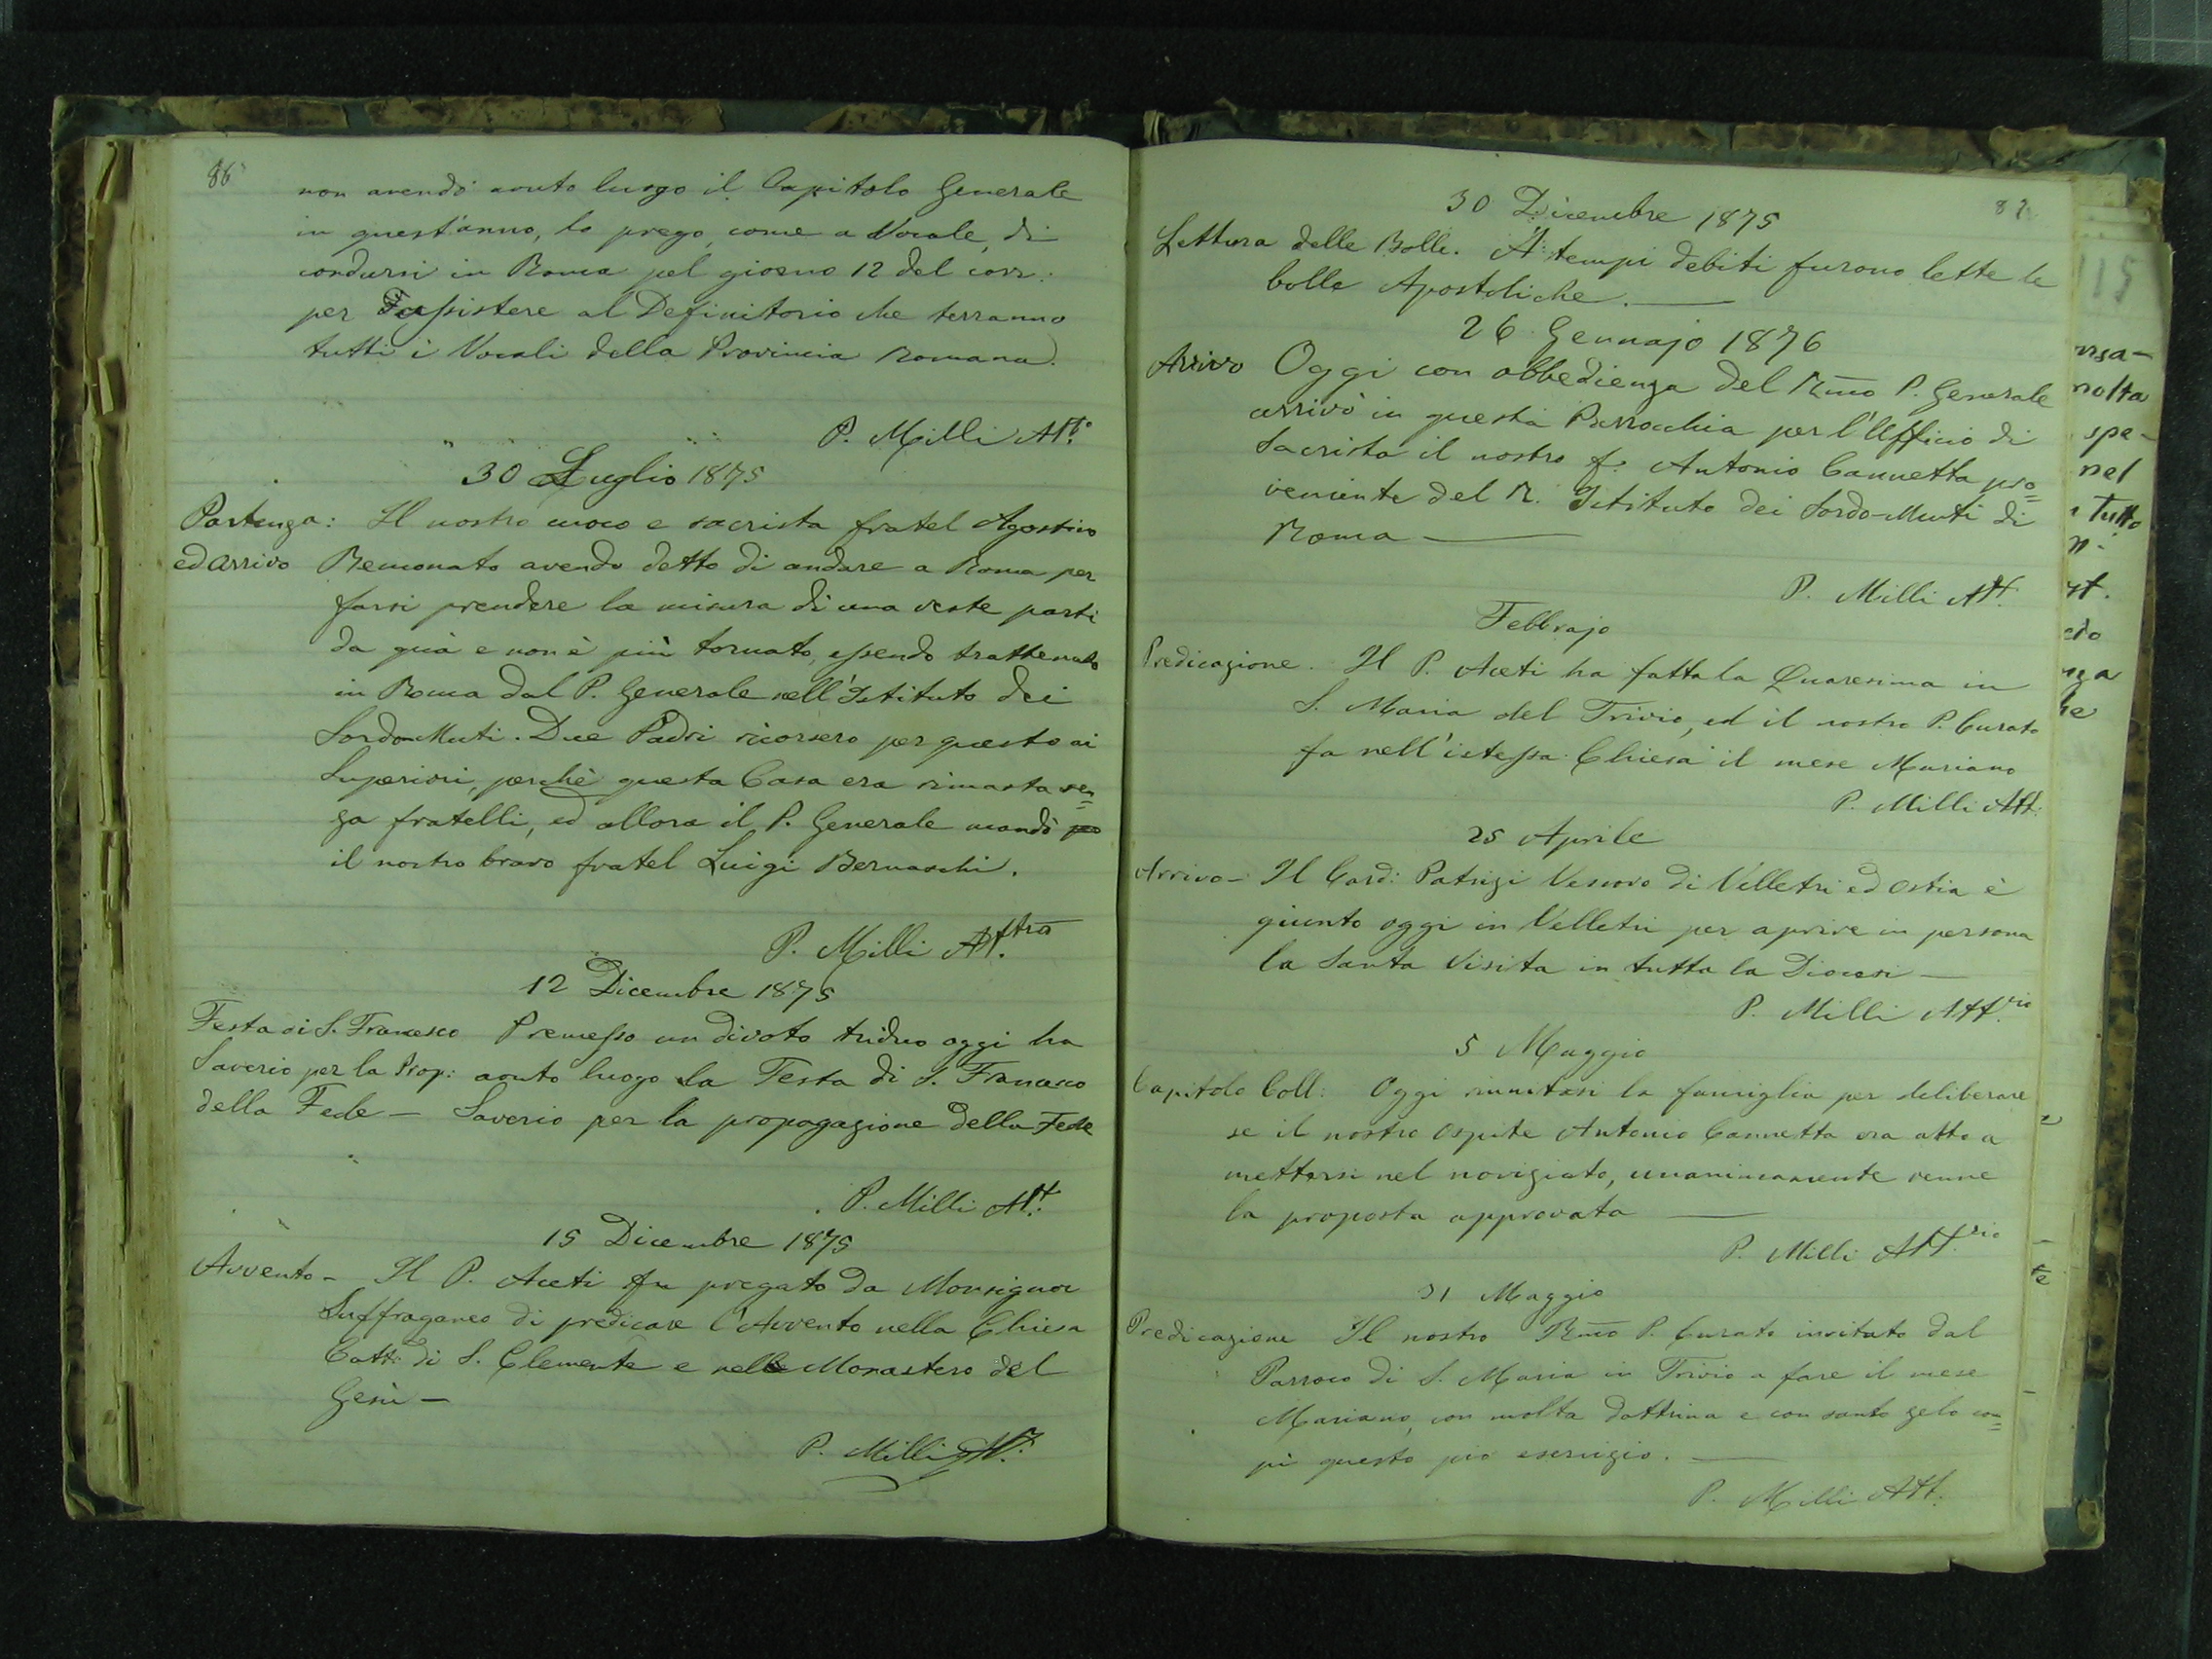 86
non avendo avuto luogo il Capitolo Generale
in quest'anno, la prego, come a Vocale, di
condursi in Roma pel giorno 12 del corr:
per assistere al Definitorio che terranno
tutti i Vocali della Provincia Romana.
P. Milli Att.°
30 Luglio 1875
Partenza: Il nostro cuoco e sacrista fratel Agostino
ed arrivo Remonato avendo detto di andare a Roma per
farsi prendere la misura di una veste partì
da quà e non è più tornato, essendo trattenuto
in Roma dal P. Generale nell'Istituto dei
Sordo-Muti. Due Padri ricorsero per questo ai
Superiori, perchè questa Casa era rimasta sen=
za fratelli, ed allora il P. Generale mandò
il nostro bravo fratel Luigi Bernaschi.
P. Milli Att.
12 Dicembre 1875
Festa di S. Francesco Premesso un divoto triduo oggi ha
Saverio per la Prop: avuto luogo la Festa di S. Francesco
della Fede – Saverio per la propagazione della Fede
P. Milli Att.
15 Dicembre 1875
Avvento – Il P. Aceti fu pregato da Monsignor
Suffraganeo di predicare l'Avvento nella Chiesa
Catt: di S. Clemente e nelle Monastero del
Gesù –
P. Milli Att.
87
30 Dicembre 1875
Lettura delle Bolle. A' tempi debiti furono lette le
bolle Apostoliche. —
26 Gennajo 1876
Arrivo Oggi con obbedienza del Rmo P. Generale
arrivò in questa Parrochia per l'Ufficio di
Sacrista il nostro f. Antonio Cannetta pro=
veniente del R. Istituto dei Sordo-Muti di
Roma —
P. Milli Att.
Febbrajo
Predicazione. Il P. Aceti ha fatta la Quaresima in
S. Maria del Trivio, ed il nostro P. Curato
fa nell'istessa Chiesa il mese Mariano
P. Milli Att.
25 Aprile
Arrivo – Il Card: Patrizi Vescovo di Velletri ed Ostia è
giunto oggi in Velletri per aprire in persona
la Santa Visita in tutta la Diocesi —
P. Milli Att.rio
5 Maggio
Capitolo Coll: Oggi riunitasi la famiglia per deliberare
se il nostro Ospite Antonio Cannetta era atto a
mettersi nel noviziato, unanimamente venne
la proposta approvata —
P. Milli Att.rio
31 Maggio
Predicazione Il nostro Rmo P. Curato invitato dal
Parroco di S. Maria in Trivio a fare il mese
Mariano, con molta dottrina e con santo zelo com=
pì questo pio esercizio. —
P. Milli Att.
115
molta
spe-
nel
Tutto